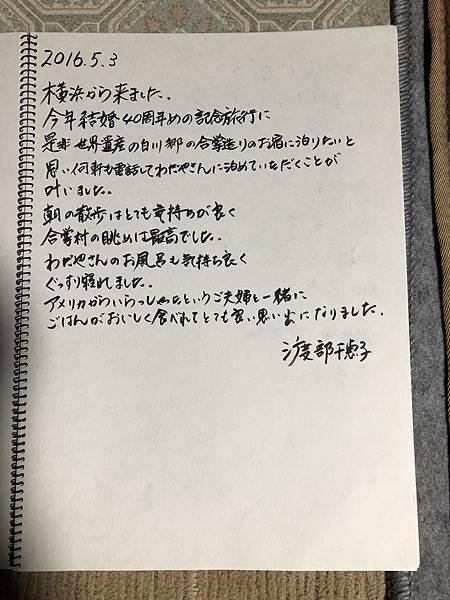 2016.5.3
横浜から来ました。
今年結婚40周年めの記念旅行に
是非世界遺産の白川郷の合掌造りのお宿に泊りたいと
思い何軒も電話してわだやさんに泊めていただくことが
叶いました。
朝の散歩はとても気持ちが良く
合掌村の眺めは最高でした。
わだやさんのお風呂も気持ち良く
ぐっすり寝れました。
アメリカからいらっしゃったというご夫婦と一緒に
ごはんがおいしく食べれてとても良い思い出になりました。
渡部千恵子